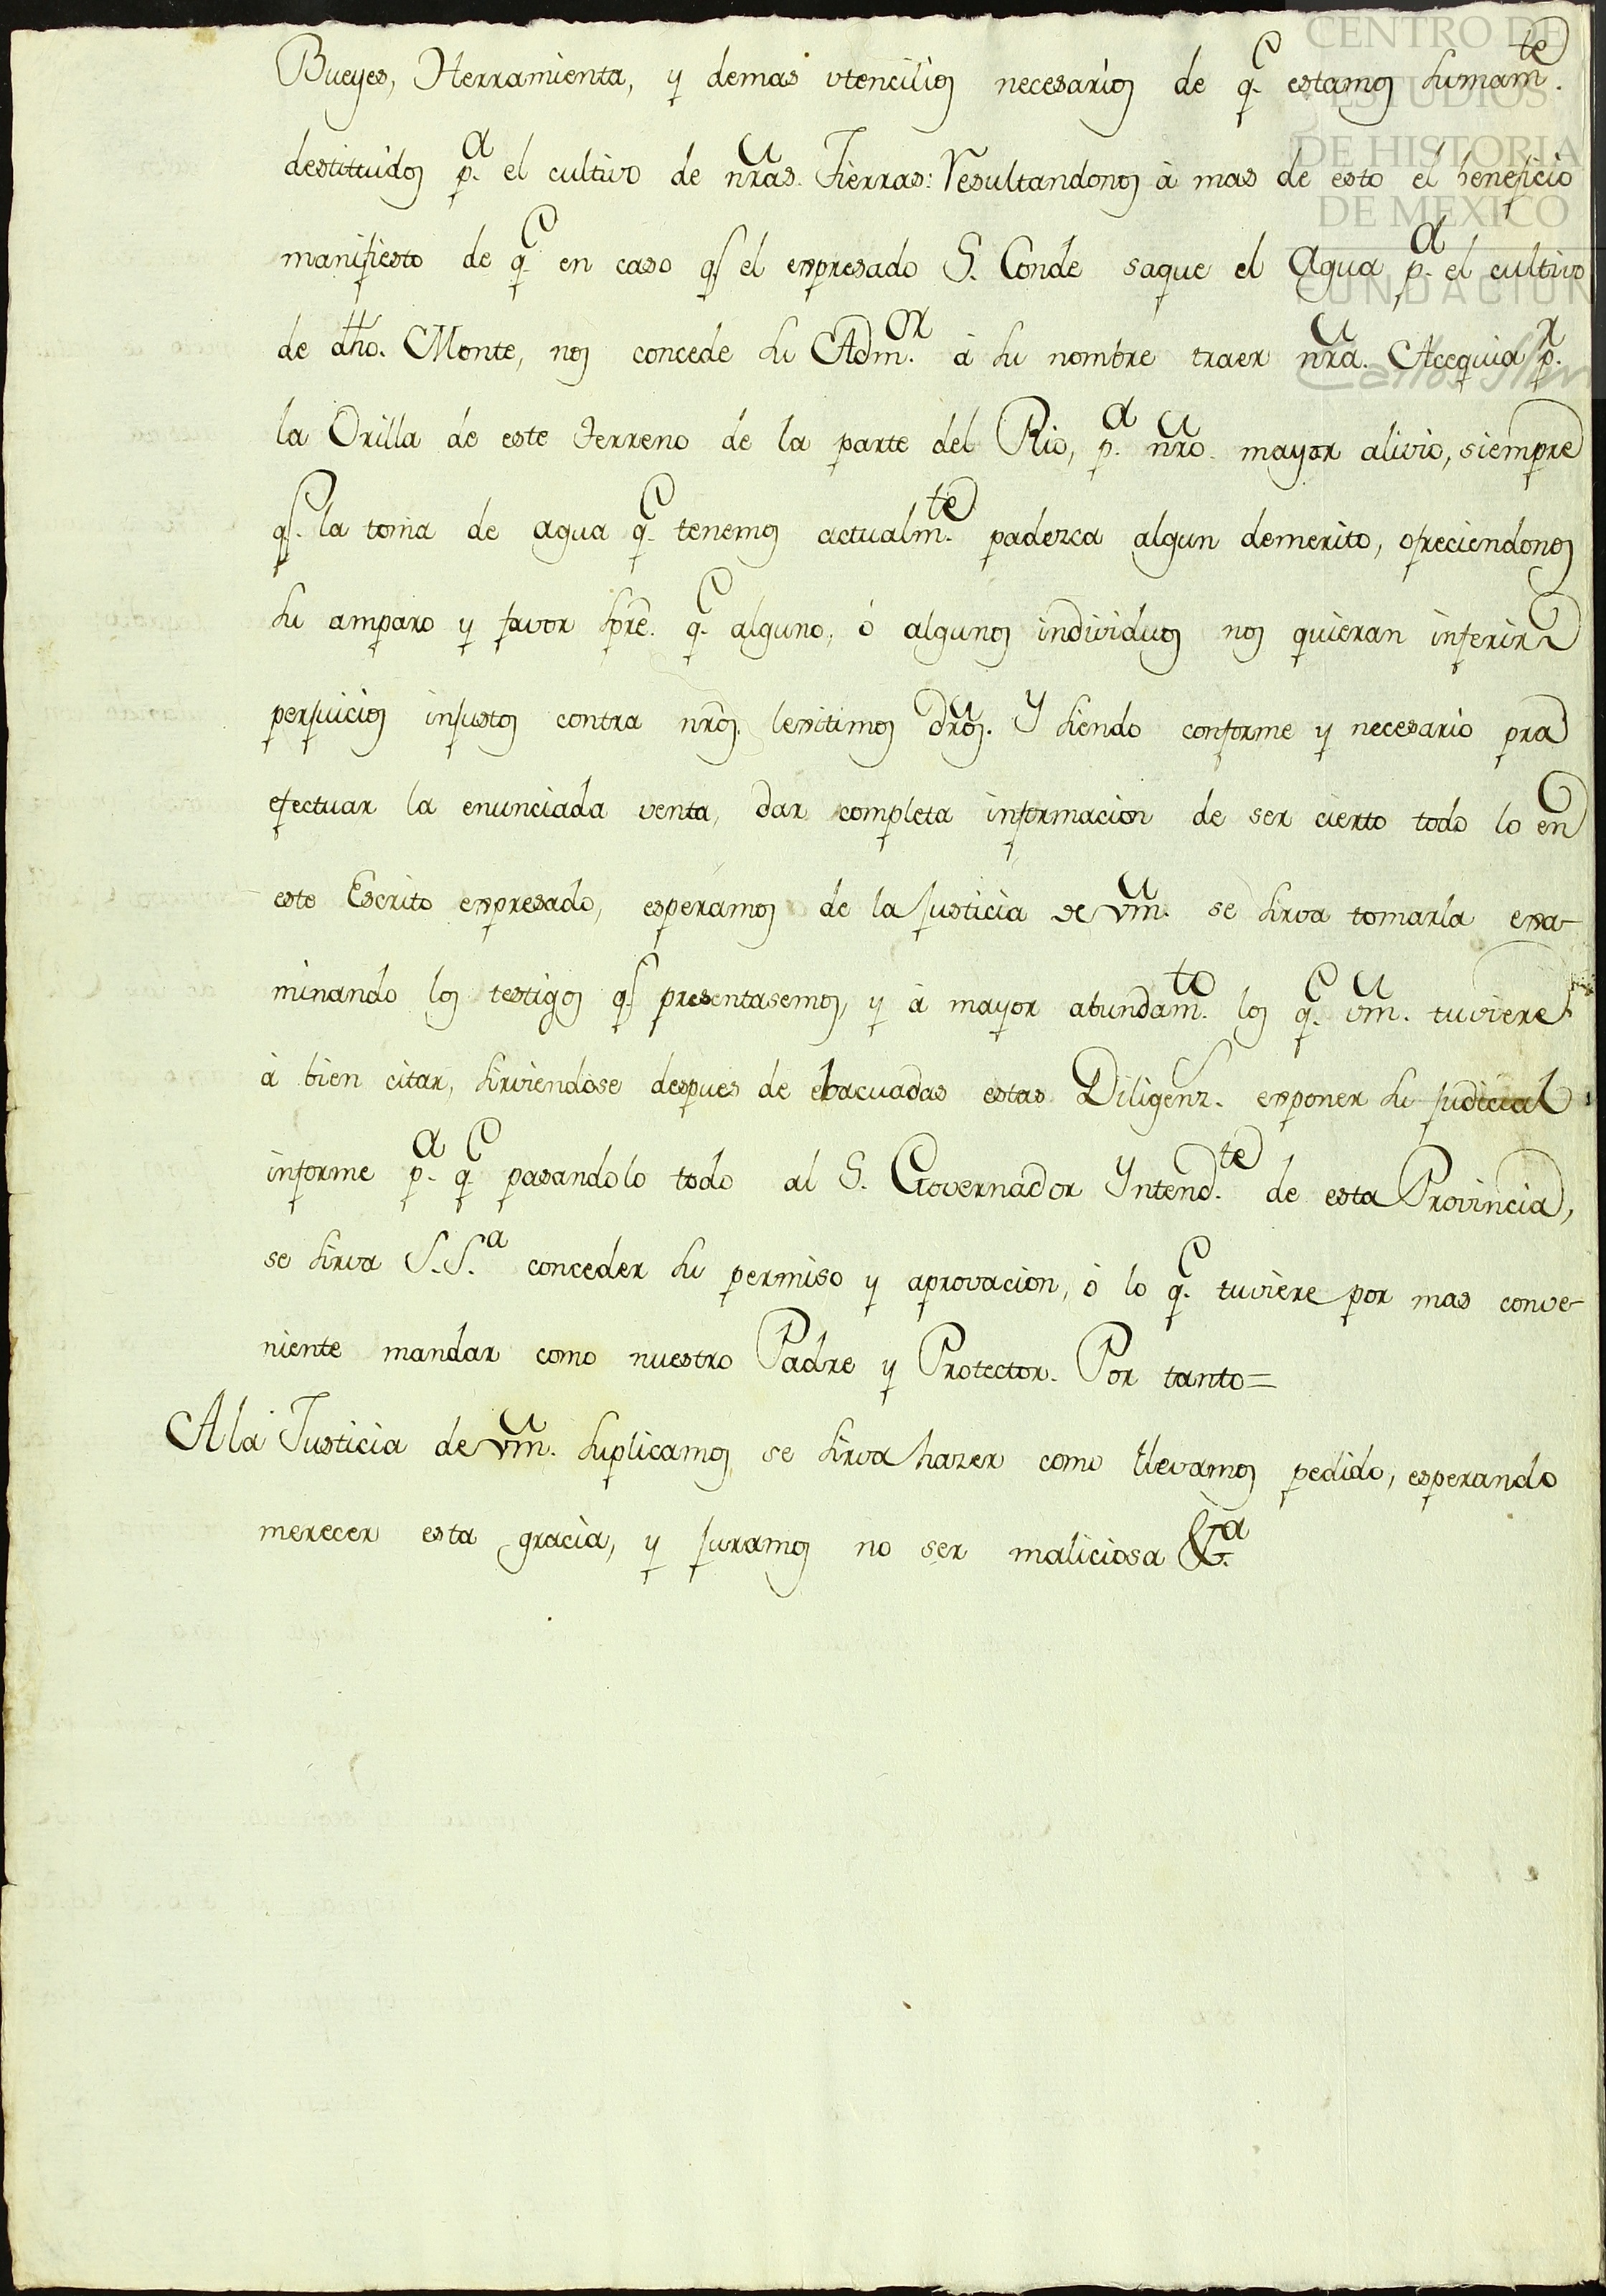 CENTRO DE
ESTUDIOS
DE HISTORIA
DE MEXICO
FUNDACION
Carlos Slim
Bueyes, Herramienta, y demas utencilios necesarios de q.e estamos sumam.te
destituidos p.a el cultivo de nras. Tierras: Resultandonos à mas de esto el beneficio
manifiesto de q.e en caso q.e el expresado S. Conde saque el Agua p.a el cultivo
de dho. Monte, nos concede su Adm.or à su nombre traer nra. Acequia p.r
la Orilla de este terreno de la parte del Rio, p.a nro. mayor alivio, siempre
q.e la toma de agua q.e tenemos actualm.te padezca algun demerito, ofreciendonos
su amparo y favor spre. q.e alguno, ó algunos individuos nos quieran inferir
perjuicios injustos contra nros. lexitimos dros. Y siendo conforme y necesario pra
efectuar la enunciada venta, dar completa informacion de ser cierto todo lo en
este Escrito expresado, esperamos de la Justicia de vm. se sirva tomarla exa-
minando los testigos q.e presentasemos, y à mayor abundam.to los q.e vm. tuviere
à bien citar, sirviendose despues de ebacuadas estas Diligenz.s exponer su judicial
informe p.a q.e pasandolo todo al S. Governador Yntend.te de esta Provincia,
se sirva S.S.a conceder su permiso y aprovacion, ó lo q.e tuviere por mas conve-
niente mandar como nuestro Padre y Protector. Por tanto=
A la Justicia de vm. suplicamos se sirva hazer como llevamos pedido, esperando
merecer esta gracia, y juramos no ser maliciosa &.a